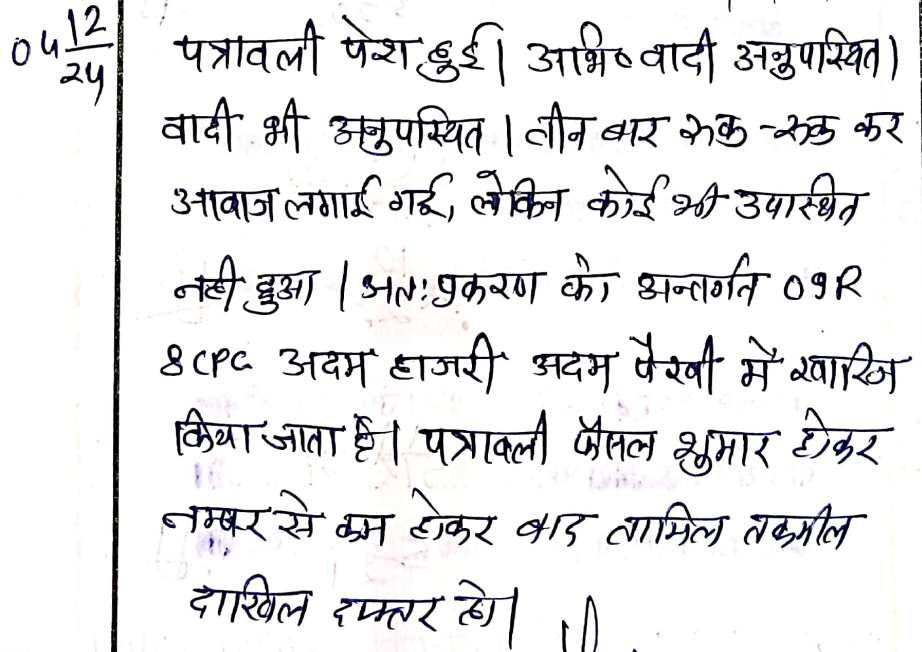 04 12/24
पत्रावली पेश हुई। अभि० वादी अनुपस्थित।
वादी भी अनुपस्थित। तीन बार रुक-रुक कर
आवाज लगाई गई, लेकिन कोई भी उपास्थीत
नही हुआ। अत: प्रकरण को अन्तर्गत 09R
8 CPC अदम हाजरी अदम पैरवी में खारिज
किया जाता है। पत्रावली फैसल शुमार होकर
नम्बर से कम होकर बाद तामिल तकमील
दाखिल दफ्तर हो।